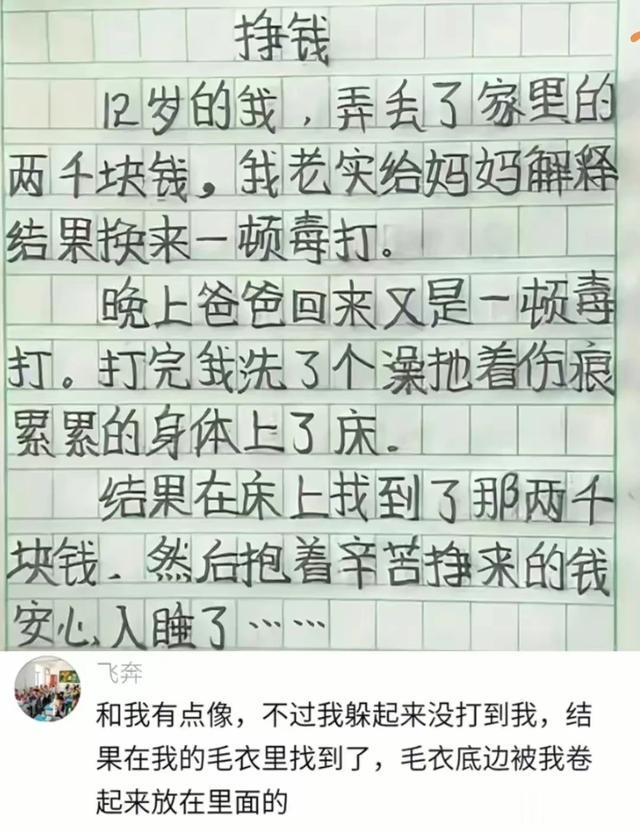 挣钱
12岁的我，弄丢了家里的
两千块钱。我老实给妈妈解释
结果换来一顿毒打。
晚上爸爸回来又是一顿毒
打。打完我洗了个澡扡着伤痕
累累的身体上了床。
结果在床上找到了那两千
块钱、然后抱着辛苦挣来的钱
安心入睡了……
飞奔
和我有点像，不过我躲起来没打到我，结
果在我的毛衣里找到了，毛衣底边被我卷
起来放在里面的